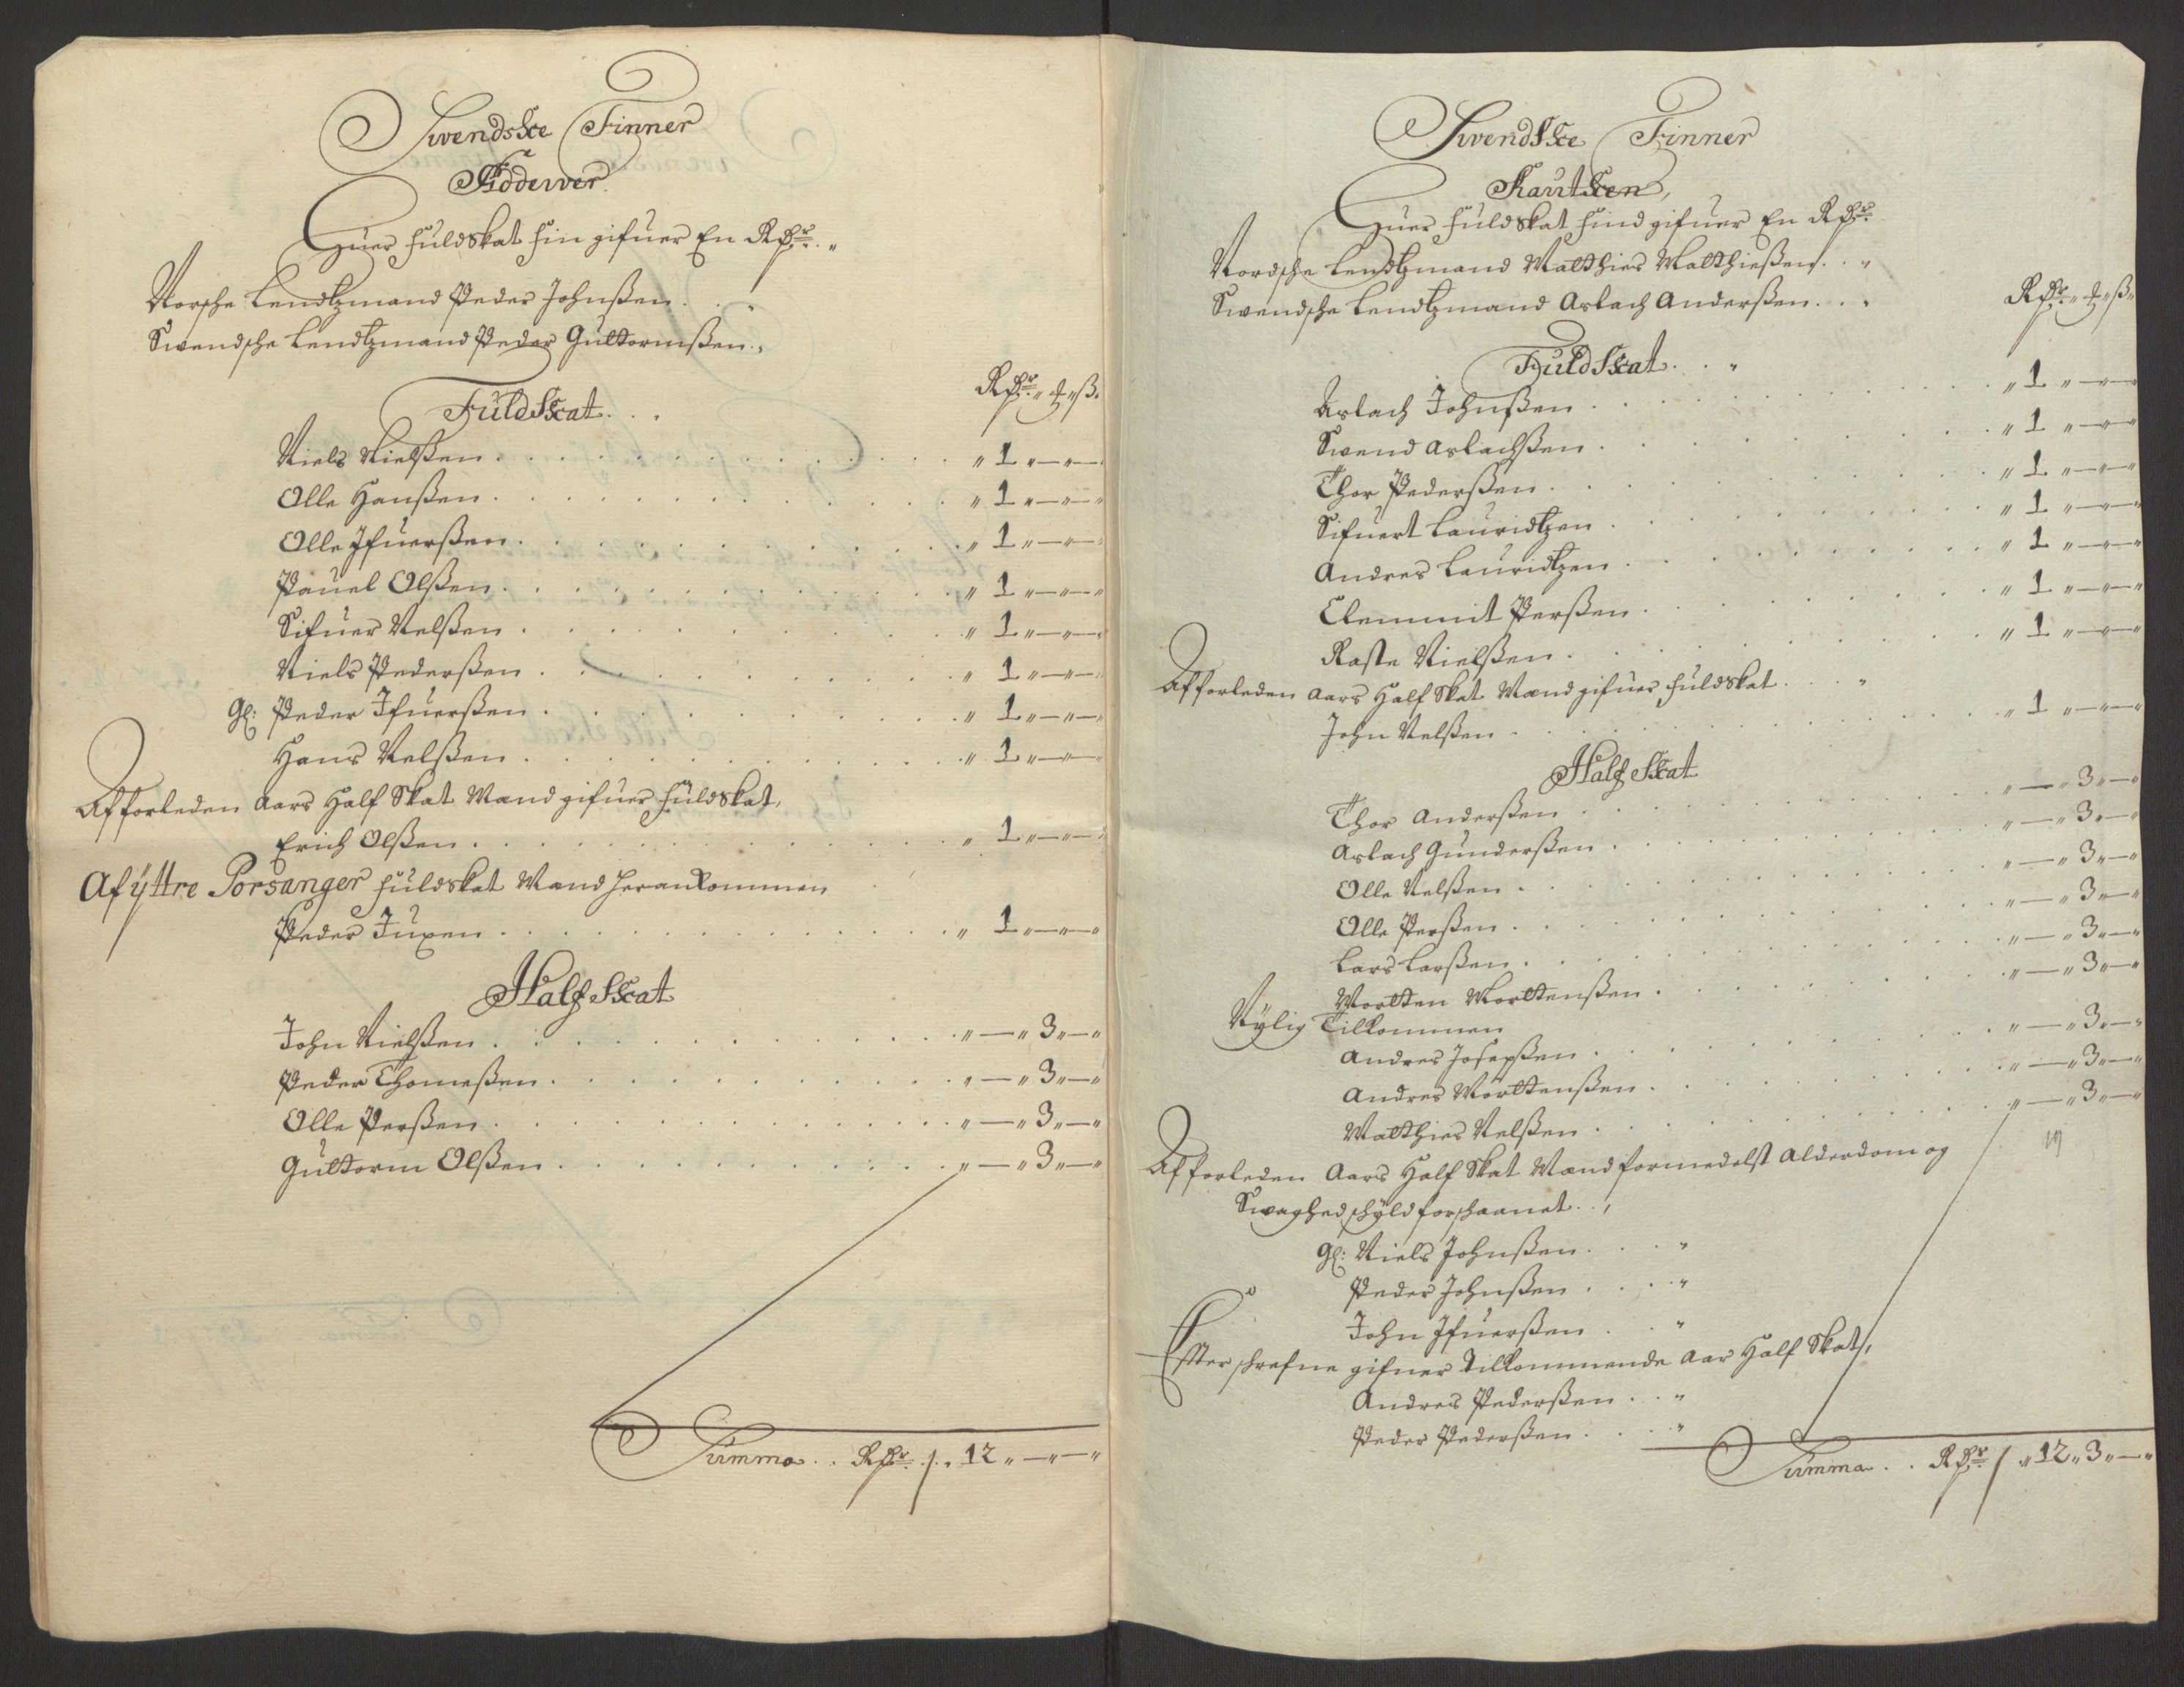 Swendske Finner
Fiddewer
Huer fuldskat fin gifuer En Rdr.
Norsche Lendtzmand Peder Johnßen
Swendsche Lendtzmand Peder Guttormßen
Rdr. ß.
Fuld Skat
Niels Nielßen " 1 " — " —
Olle Hanßen " 1 " — " —
Olle Ifuerßen " 1 " — " —
Pauel Olßen " 1 " — " —
Sifuer Nelßen " 1 " — " —
Niels Pederßen " 1 " — " —
Gl: Peder Ifuerßen " 1 " — " —
Hans Nelßen " 1 " — " —
Af forleden Aars Half Skat Mand gifuer fuldskat,
Erich Olßen " 1 " — " —
Af ÿttre Porsanger fuldskat Mand heran kommen
Peder Juxen " 1 " — " —
Half Skat
John Nielßen " — " 3 " — "
Peder Thomeßen " — " 3 " — "
Olle Perßen " — " 3 " — "
Guttorm Olßen " — " 3 " — "
Summa .. Rdr. 12 " — " — "
Swendske Finner
Kautken,
Huer fuldskat find gifuer En Rdr.
Nordsche Lendtzmand Matthies Matthießen
Swendsche Lendtzmand Aslach Anderßen
Rdr. ß.
Fuld Skat
Aslach Johnßen " 1 " — " —
Swend Aslachßen " 1 " — " —
Thor Pederßen " 1 " — " —
Sifuert Lauridtzen " 1 " — " —
Andres Lauridtzen " 1 " — " —
Clemmit Perßen " 1 " — " —
Raste Nielßen " 1 " — " —
Af forleden Aars Half Skat Mand gifuer fuldskat
John Nelßen " 1 " — " —
Half Skat
Thor Anderßen " — " 3 " — "
Aslach Gunderßen " — " 3 " — "
Olle Nelßen " — " 3 " — "
Olle Perßen " — " 3 " — "
Lars Larßen " — " 3 " — "
Mortten Morttenßen " — " 3 " — "
Nÿlig Tilkommen
Andres Josepßen " — " 3 " — "
Andres Morttenßen " — " 3 " — "
Matthies Nelßen " — " 3 " — "
Af forleden Aars Half Skat Mand formedelst Alderdom og
Swaghed schÿld forschaanet
Gl: Niels Johnßen
Peder Johnßen
John Ifuerßen
Efter schrefne gifuer Tilkommende Aar Half Skat,
Andres Pederßen
Peder Pederßen
Summa .. Rdr " 12 " 3 " — "